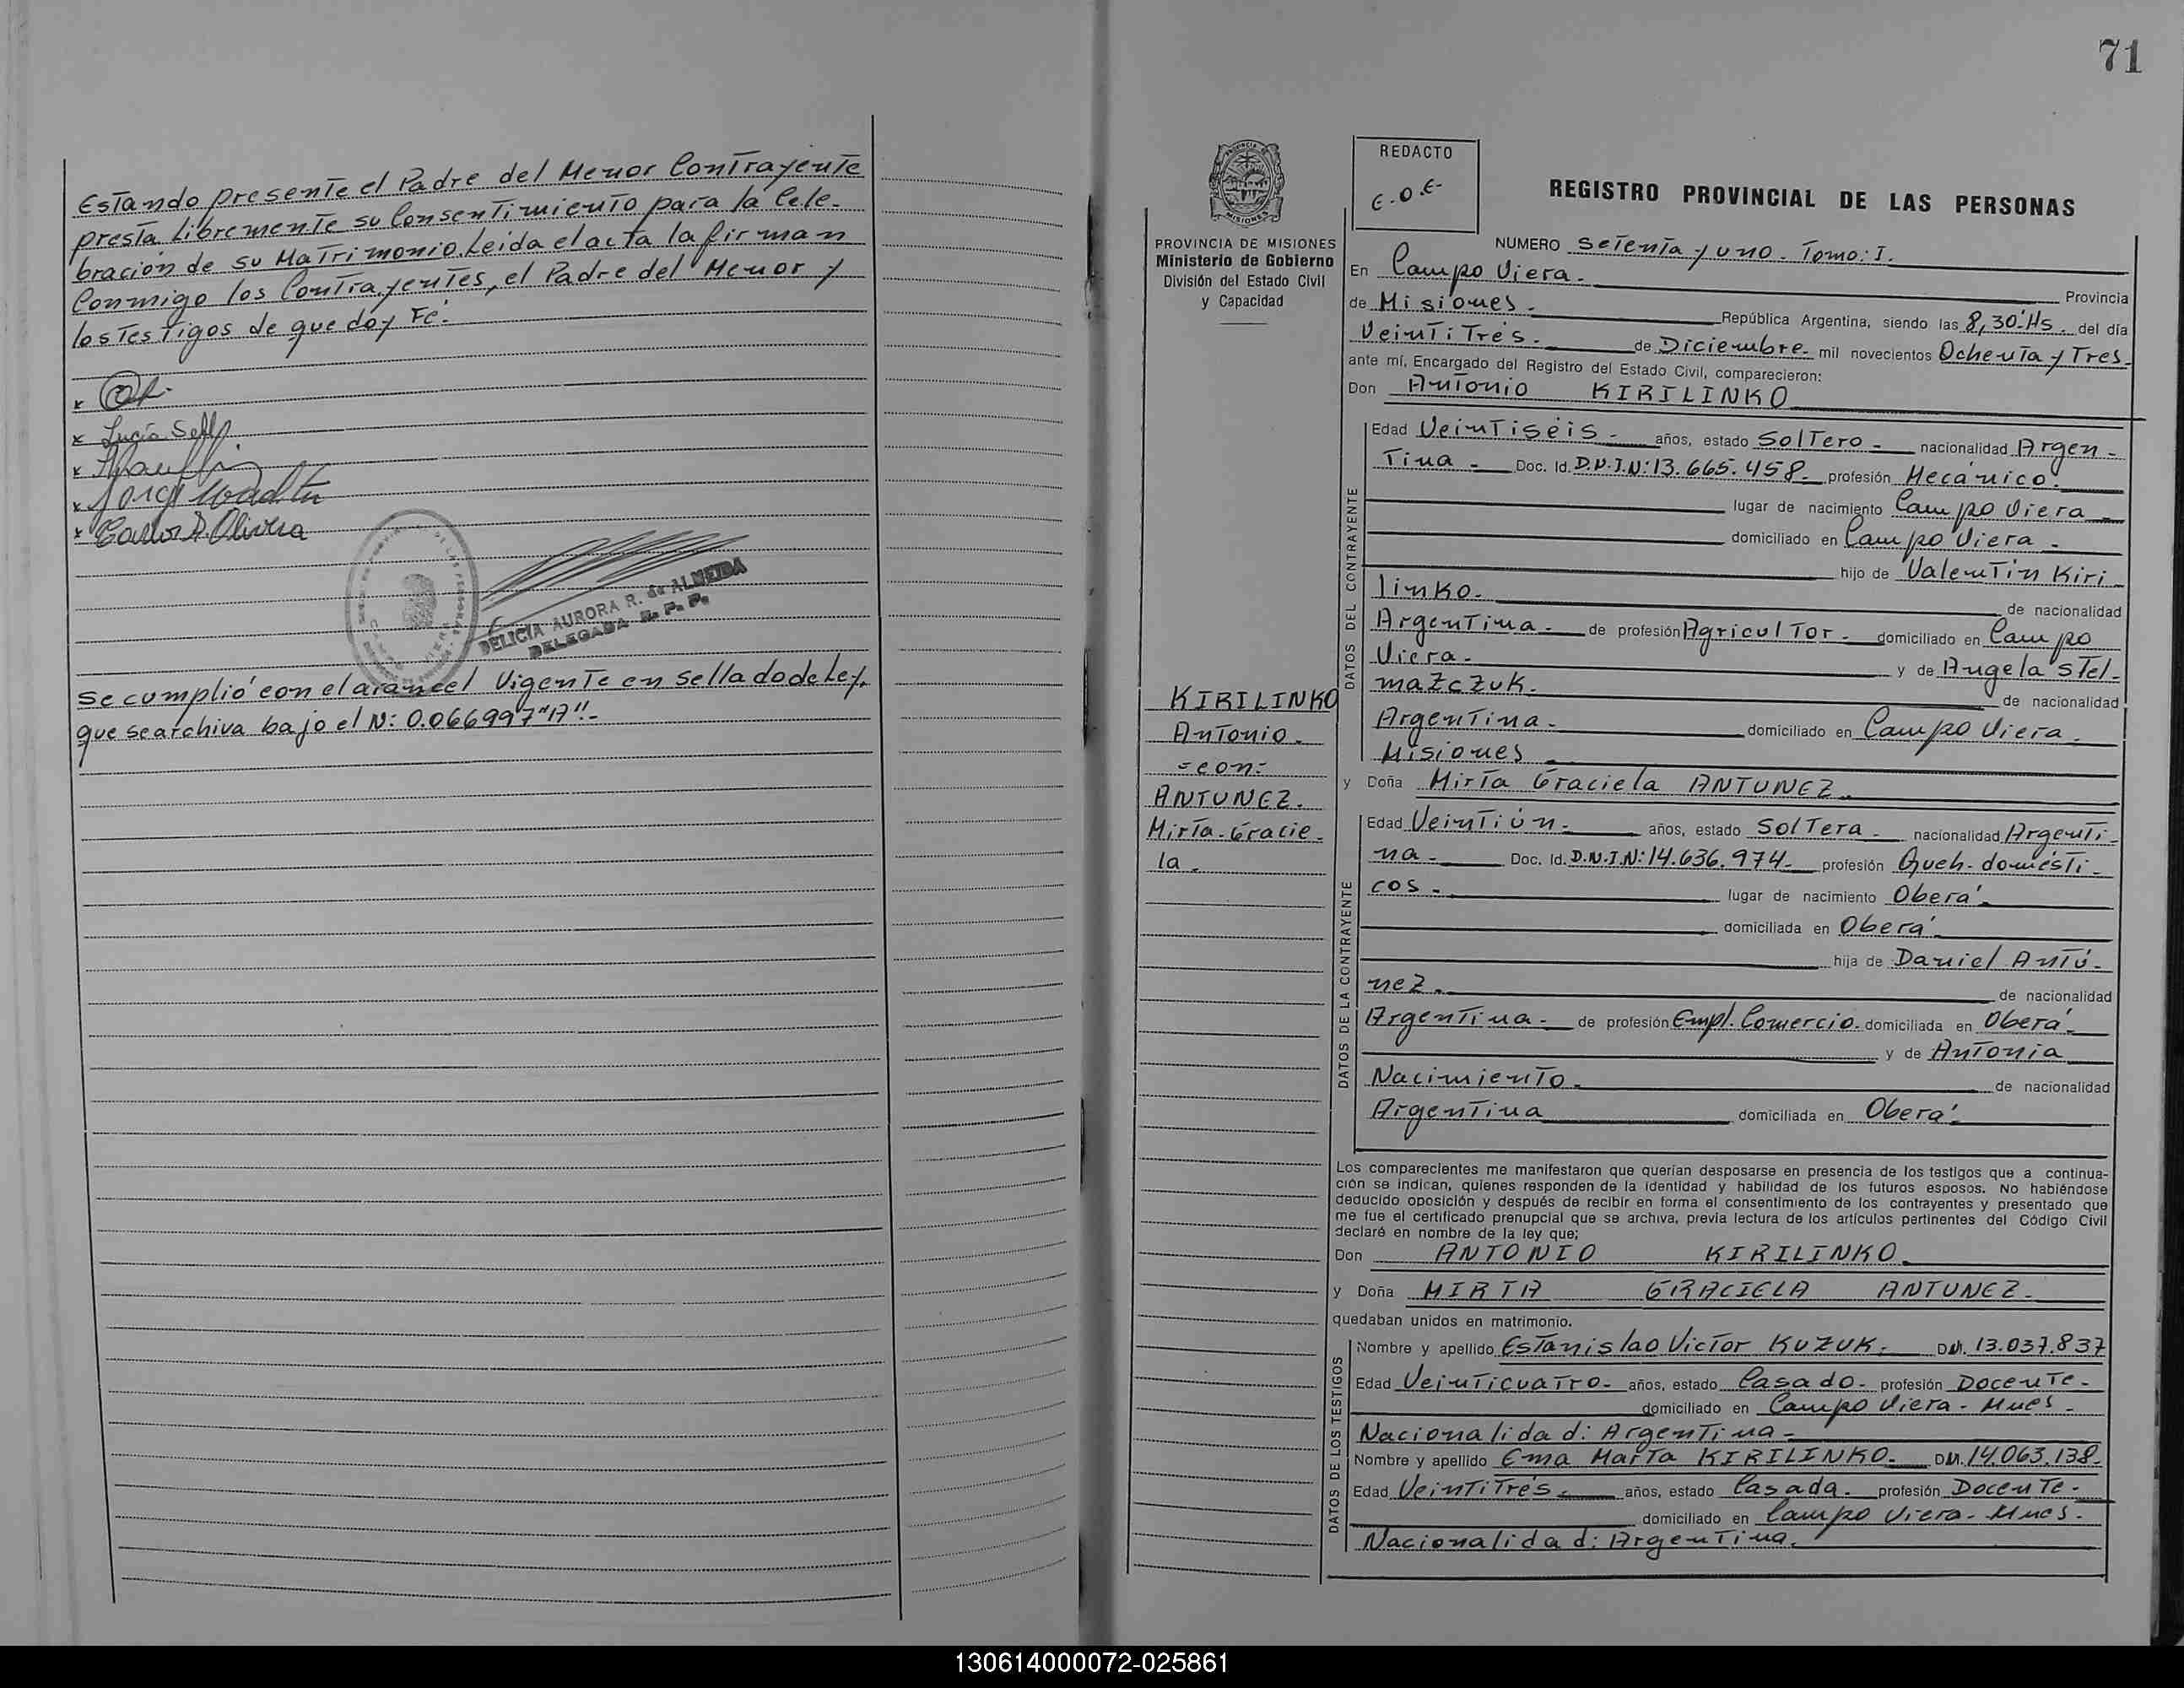 Estando presente el Padre del Menor Contrayente
presta libremente su Consentimiento para la Cele-
bración de su Matrimonio. Leida el acta la firman
Conmigo los Contrayentes, el Padre del Menor y
los Testigos de que doy Fé.-
x
x Lucía
x
x Jorge
x Carlos A. Olivera
DELICIA AURORA R. de ALMEIDA
DELEGADA R. P. P.
Se cumplió con el arancel Vigente en Sellado de Ley,
que se archiva bajo el N: 0.066997 "A".-
71
PROVINCIA DE MISIONES
Ministerio de Gobierno
División del Estado Civil
y Capacidad
REDACTO
E.O.E-
REGISTRO PROVINCIAL DE LAS PERSONAS
NUMERO Setenta y uno. Tomo: I.
En Campo Viera. Provincia
de Misiones. República Argentina, siendo las 8,30 Hs. del día
Veintitrés. de Diciembre. mil novecientos Ochenta y Tres-
ante mí, Encargado del Registro del Estado Civil, comparecieron:
Don Antonio KIRILINKO
DATOS DEL CONTRAYENTE
Edad Veintiséis - años, estado Soltero - nacionalidad Argen-
tina - Doc. Id. D.N.I.N: 13.665.458. profesión Mecánico.
lugar de nacimiento Campo Viera -
domiciliado en Campo Viera -
hijo de Valentín Kiri
linko. de nacionalidad
Argentina - de profesión Agricultor - domiciliado en Campo
Viera. y de Angela Stel-
mazczuk. de nacionalidad
Argentina - domiciliado en Campo Viera.
Misiones
KIRILINKO
Antonio.
= con =
ANTUNEZ.
Mirta - Gracie-
la.
y Doña Mirta Graciela ANTUNEZ.
DATOS DE LA CONTRAYENTE
Edad Veintiún - años, estado Soltera - nacionalidad Argenti-
na - Doc. Id. D.N.I.N: 14.636.974- profesión Queh. domésti-
cos - lugar de nacimiento Oberá.
domiciliada en Oberá.
hija de Daniel Antú-
nez. de nacionalidad
Argentina - de profesión Empl. Comercio. domiciliada en Oberá -
y de Antonia
Nacimiento. de nacionalidad
Argentina domiciliada en Oberá.
Los comparecientes me manifestaron que querían desposarse en presencia de los testigos que a continua-
ción se indican, quienes responden de la identidad y habilidad de los futuros esposos. No habiéndose
deducido oposición y después de recibir en forma el consentimiento de los contrayentes y presentado que
me fue el certificado prenupcial que se archiva, previa lectura de los artículos pertinentes del Código Civil
declaré en nombre de la ley que;
Don ANTONIO KIRILINKO.
y Doña MIRTA GRACIELA ANTUNEZ.
quedaban unidos en matrimonio.
DATOS DE LOS TESTIGOS
Nombre y apellido Estanislao Victor KUZUK. DNI. 13.037.837
Edad Veinticuatro - años, estado Casado - profesión Docente -
domiciliado en Campo Viera - Mnes -
Nacionalidad: Argentina -
Nombre y apellido Ema Marta KIRILINKO. DNI. 14.063.138-
Edad Veintitrés - años, estado Casada - profesión Docente -
domiciliado en Campo Viera - Mnes -
Nacionalidad: Argentina.
130614000072-025861